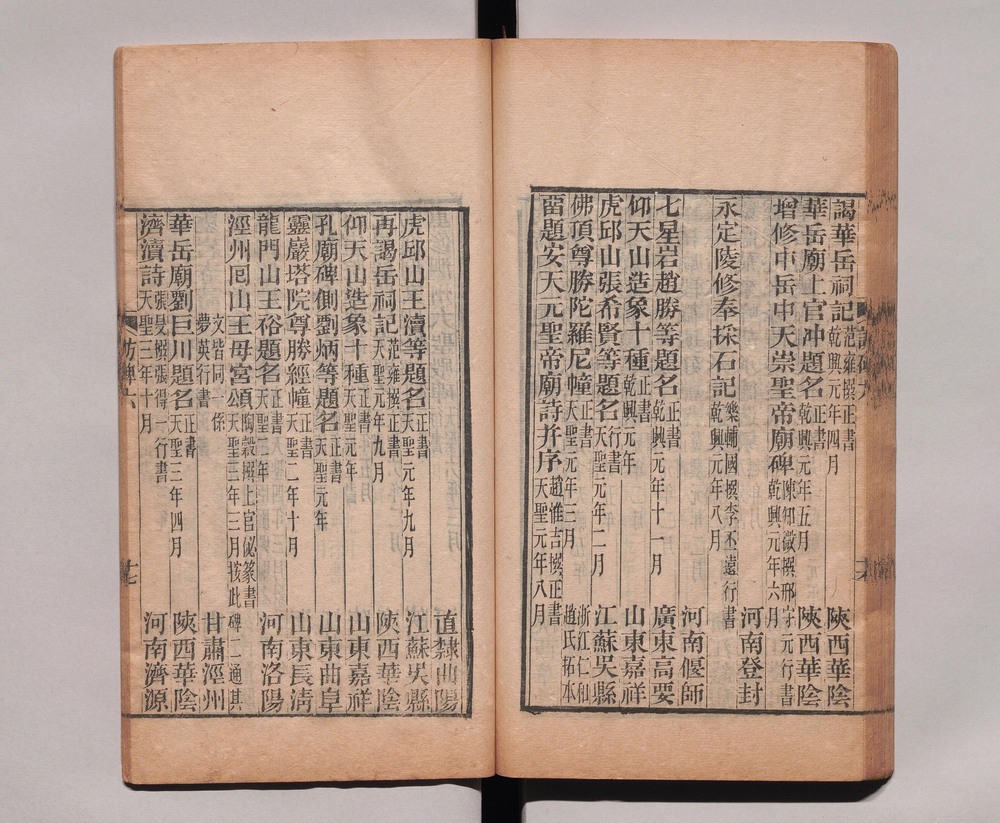 謁華岳祠記 范雍撰正書 乾興元年四月 陝西華陰
華岳廟上官冲題名 正書 乾興元年五月 陝西華陰
增修中岳中天崇聖帝廟碑 陳知微撰邢守元行書 乾興元年六月
河南登封
永定陵修奉採石記 樂輔國撰李丕遠行書 乾興元年八月
河南偃師
七星岩趙勝等題名 正書 乾興元年十一月 廣東高要
仰天山造象十種 正書 乾興元年 山東嘉祥
虎邱山張希賢等題名 行書 天聖元年二月 江蘇吳縣
佛頂尊勝陀羅尼幢 正書 天聖元年三月 浙江仁和趙氏拓本
留題安天元聖帝廟詩幷序 趙惟吉撰正書 天聖元年八月
直隸曲陽
虎邱山王瀆等題名 正書 天聖元年九月 江蘇吳縣
再謁岳祠記 范雍撰正書 天聖元年九月 陝西華陰
仰天山造象十種 正書 天聖元年 山東嘉祥
孔廟碑側劉炳等題名 正書 天聖元年 山東曲阜
靈巖塔院尊勝經幢 正書 天聖二年十月 山東長淸
龍門山王裕題名 正書 天聖二年 河南洛陽
涇州囘山王母宮頌 陶穀撰上官佖篆書 天聖三年三月按此碑二通其
文皆同一係夢英行書 甘肅涇州
華岳廟劉巨川題名 正書 天聖三年四月 陝西華陰
濟瀆詩 張旻撰張得一行書 天聖三年十月 河南濟源
訪碑六
十七